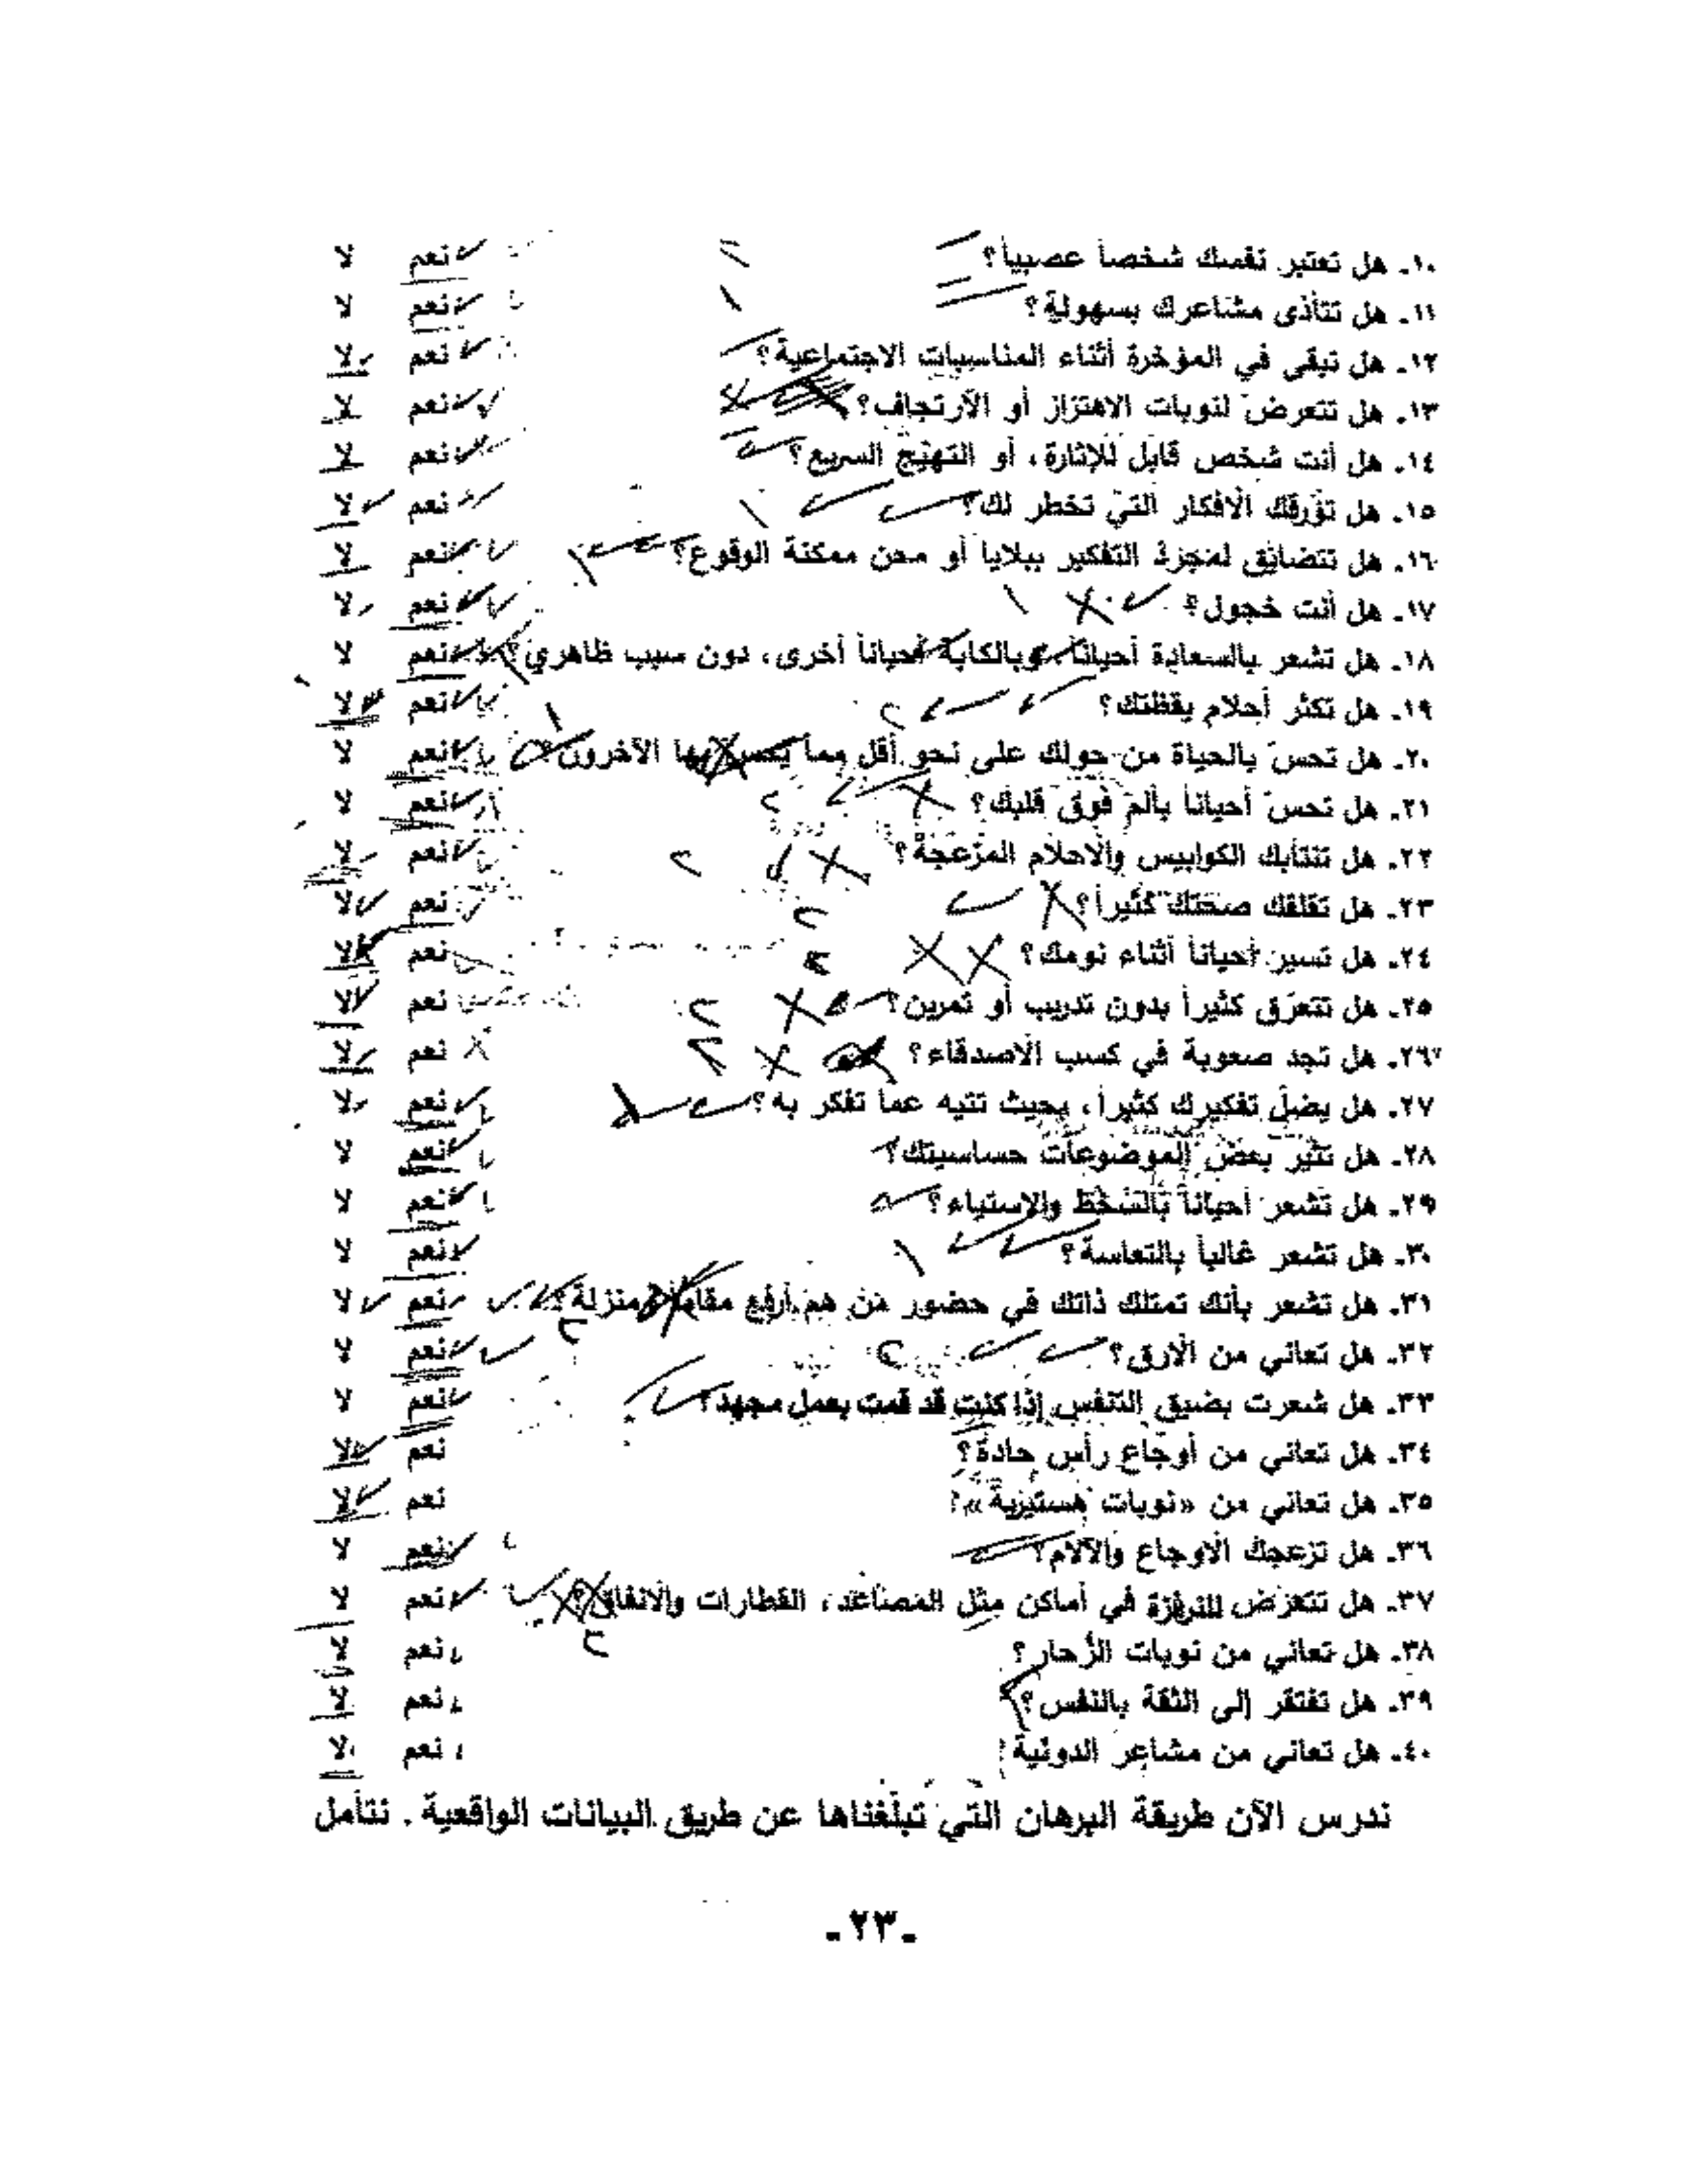 ١٠. هل تعتبر نفسك شخصاً عصبياً؟ نعم لا
١١. هل تتأذى مشاعرك بسهولة؟ نعم لا
١٢. هل تبقى في المؤخرة أثناء المناسبات الاجتماعية؟ نعم لا
١٣. هل تتعرض لنوبات الاهتزاز أو الارتجاف؟ نعم لا
١٤. هل أنت شخص قابل للإثارة، أو التهيّج السريع؟ نعم لا
١٥. هل تؤرقك الأفكار التي تخطر لك؟ نعم لا
١٦. هل تتضايق لمجرد التفكير ببلايا أو محن ممكنة الوقوع؟ نعم لا
١٧. هل أنت خجول؟ نعم لا
١٨. هل تشعر بالسعادة أحياناً، وبالكآبة أحياناً أخرى، دون سبب ظاهري؟ نعم لا
١٩. هل تكثر أحلام يقظتك؟ نعم لا
٢٠. هل تحسّ بالحياة من حولك على نحو أقل مما يحس بها الآخرون؟ نعم لا
٢١. هل تحسّ أحياناً بألم فوق قلبك؟ نعم لا
٢٢. هل تنتابك الكوابيس والأحلام المزعجة؟ نعم لا
٢٣. هل تقلقك صحتك كثيراً؟ نعم لا
٢٤. هل تسير أحياناً أثناء نومك؟ نعم لا
٢٥. هل تتعرّق كثيراً بدون تدريب أو تمرين؟ نعم لا
٢٦. هل تجد صعوبة في كسب الأصدقاء؟ نعم لا
٢٧. هل يضلّ تفكيرك كثيراً، بحيث تتيه عما تفكر به؟ نعم لا
٢٨. هل تثير بعض الموضوعات حساسيتك؟ نعم لا
٢٩. هل تشعر أحياناً بالسخط والاستياء؟ نعم لا
٣٠. هل تشعر غالباً بالتعاسة؟ نعم لا
٣١. هل تشعر بأنك تمتلك ذاتك في حضور من هم أرفع مقاماً ومنزلة؟ نعم لا
٣٢. هل تعاني من الأرق؟ نعم لا
٣٣. هل شعرت بضيق التنفس إذا كنت قد قمت بعمل مجهد؟ نعم لا
٣٤. هل تعاني من أوجاع رأس حادة؟ نعم لا
٣٥. هل تعاني من «نوبات هستيرية»؟ نعم لا
٣٦. هل تزعجك الأوجاع والآلام؟ نعم لا
٣٧. هل تتعرض للنرفزة في أماكن مثل المصاعد، القطارات والانفاق؟ نعم لا
٣٨. هل تعاني من نوبات الزُحار؟ نعم لا
٣٩. هل تفتقر إلى الثقة بالنفس؟ نعم لا
٤٠. هل تعاني من مشاعر الدونية؟ نعم لا
ندرس الآن طريقة البرهان التي تبلّغناها عن طريق البيانات الواقعية. نتأمل
-٢٣-